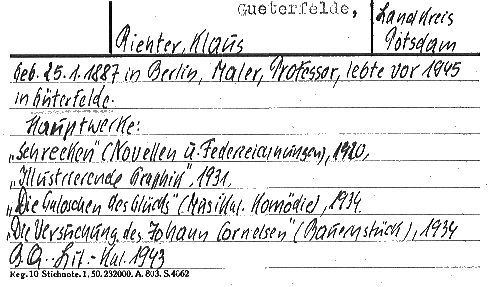 Gueterfelde,
Landkreis
Potsdam
Richter, Klaus
Geb. 25.1.1887 in Berlin, Maler, Professor, lebte vor 1945
in Güterfelde.
Hauptwerke:
„Schrecken" (Novellen u. Federzeichnungen), 1920,
„Illustrierende Graphik", 1931,
„Die Galoschen des Glücks" (Musikal. Komödie), 1934.
„Die Versuchung des Johann Cornelsen" (Bauernstück), 1934
Lit.-Kal. 1943
Reg. 10 Stichnote. 1, 50. 232000. A. 803. S. 4662